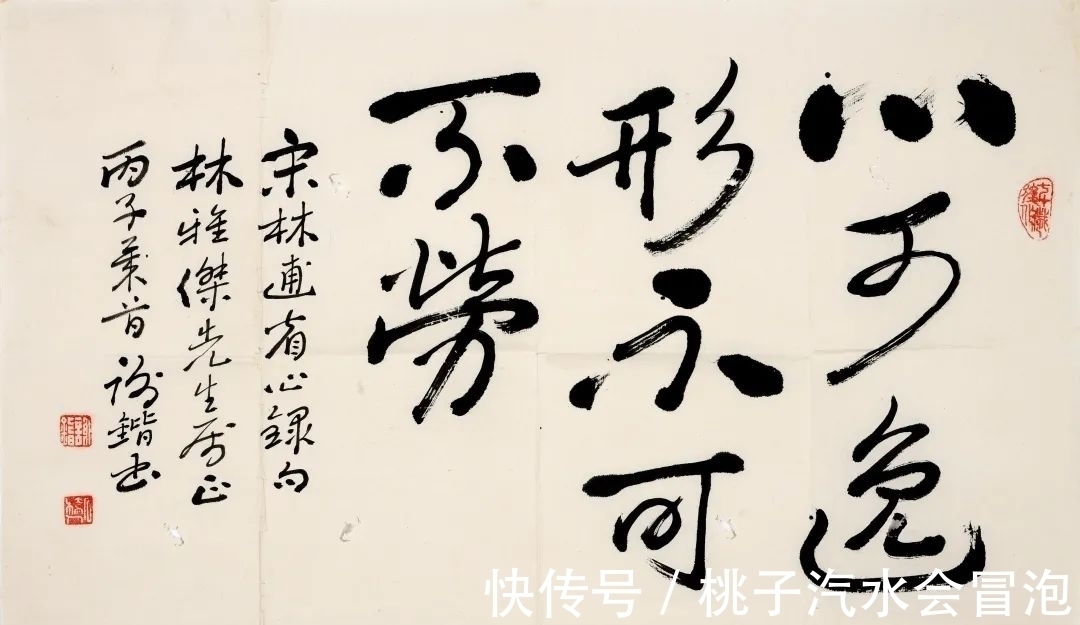 心可逸
形不可
不勞
宋林逋省心錄句
林雅傑先生屬正
丙子歲首謝鍇書
快传号 / 桃子汽水会冒泡